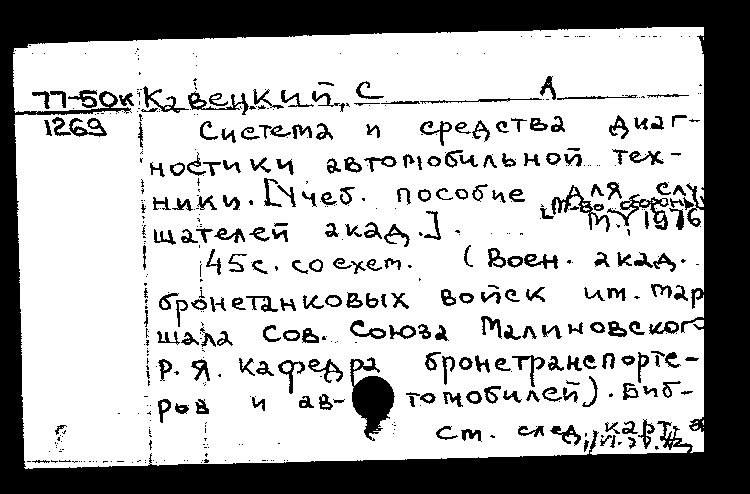 77-50к Кавецкий, С А
1269 Система и средства диаг-
ностики автомобильной тех-
ники. [Учеб. пособие для слу-
шателей акад.]. М., 1976
45 с. со схем. (Воен. акад.
бронетанковых войск им. мар
шала Сов. Союза Малиновского
Р. Я. Кафедра бронетранспорте-
ров и ав- томобилей). Биб-
См. след. карт.